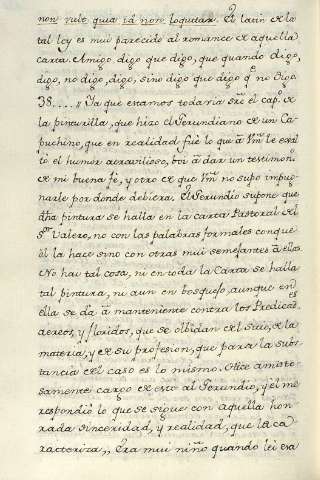 non vule quia id non loquitar. El latin de la
tal ley es mui parecido al romance de aquella
carta Amigo, digo que digo, que quando digo,
digo, no digo, digo, sino digo que digo q.e no digo.
38..... Ya que estamos todavia sre el cap.o de
la pinturilla, que hizo el Gerundiano de un Ca-
puchino, que en realidad fue lo que à Vm. le exal-
tò el humor atravilioso, voi à dar un testimoni
de mi buena fe, y otro de que Vm. no supo impug-
narle por donde debiera. El Gerundio supone que
dha pintura se halla en la carta Pastoral del
S.or Valero, no con las palabras formales con que
èl la hace sino con otras mui semejantes à ellas.
No hai tal cosa, ni en toda la Carta se halla
tal pintura, ni aun en bosquejo, aunque en
ella se dà à manteniente contra los Predicad.es
aereos, y floridos, que se olbidan del Sitio, de la
materia, y de su profesion, que para la subs-
tancia del caso es lo mismo. Hice amisto-
samente cargo de esto al Gerundio, y èl me
respondiò lo que se sigue con aquella hon-
rada sinceridad, y realidad, que la ca-
racteriza,, Era mui niño quando lei esa